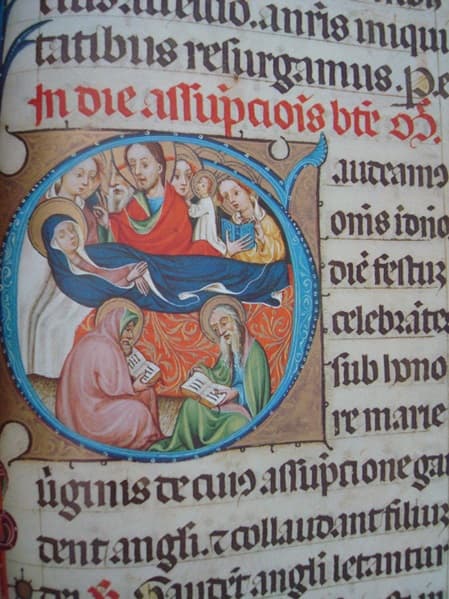 anris iniqui
tatibus resurgamus. Pe
In die assūpciois bte M.
G audeamꝰ
oms i dno
diē festuʒ
celebrātes
sub hono
re marie
ūginis de cuiꝰ assūpcione gau
dent angli. ⁊ collaudant filiuʒ
dei angli letantur